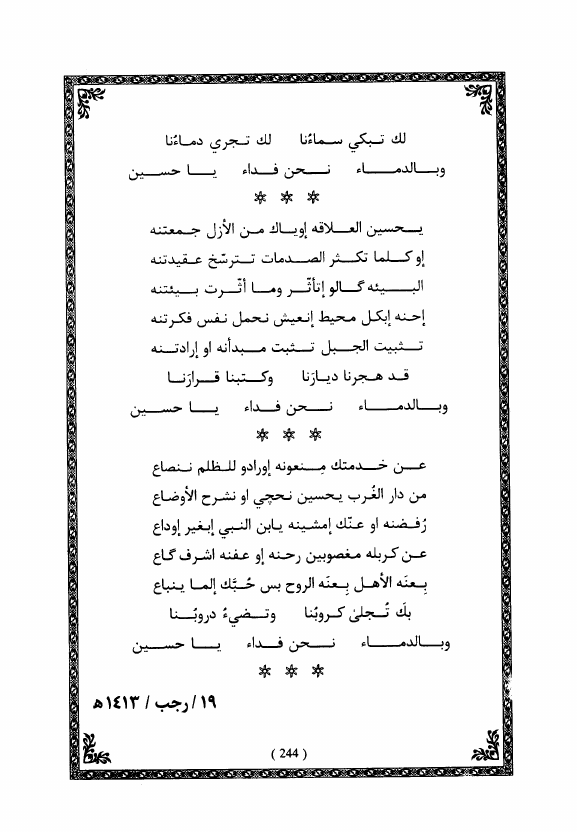 لك تـبكي سـماءُنا لك تـجري دمـاءُنا
وبـالدمـاء نـحن فـداء يـا حسـين
* * *
يـحسين العـلاقه إويـاك مـن الأزل جـمعتنه
إو كـلما تكـثر الصـدمات تـترسّخ عـقيدتنه
البـيئه گـالو إتأثّـر ومـا أثّـرت بـيئتنه
إحـنه إبكـل محيط إنعيش نـحمل نـفس فكـرتنه
تـثبيت الجـبل تـثبت مـبدأنه او إرادتـنه
قـد هـجرنا ديـارَنا وكـتبنا قـرارَنـا
وبـالدمـاء نـحن فـداء يـا حسـين
* * *
عـن خـدمتك مـنعونه إورادو للـظلم نـنصاع
من دار الغُرب يـحسين نـحچي او نشرح الأوضاع
رُفـضنه او عـنّك إمشينه يـابن النبي إبغير إوداع
عـن كربله مغصوبين رحـنه إو عـفنه اشرف گـاع
بِـعنَه الأهـل بِـعنَه الروح بس حُـبّك إلمـا يـنباع
بكَ تُـجلىٰ كـروبُنا وتـضيءُ دروبُـنا
وبـالدمـاء نـحن فـداء يـا حسـين
* * *
١٩ / رجب / ١٤١٣ هـ
( 244 )